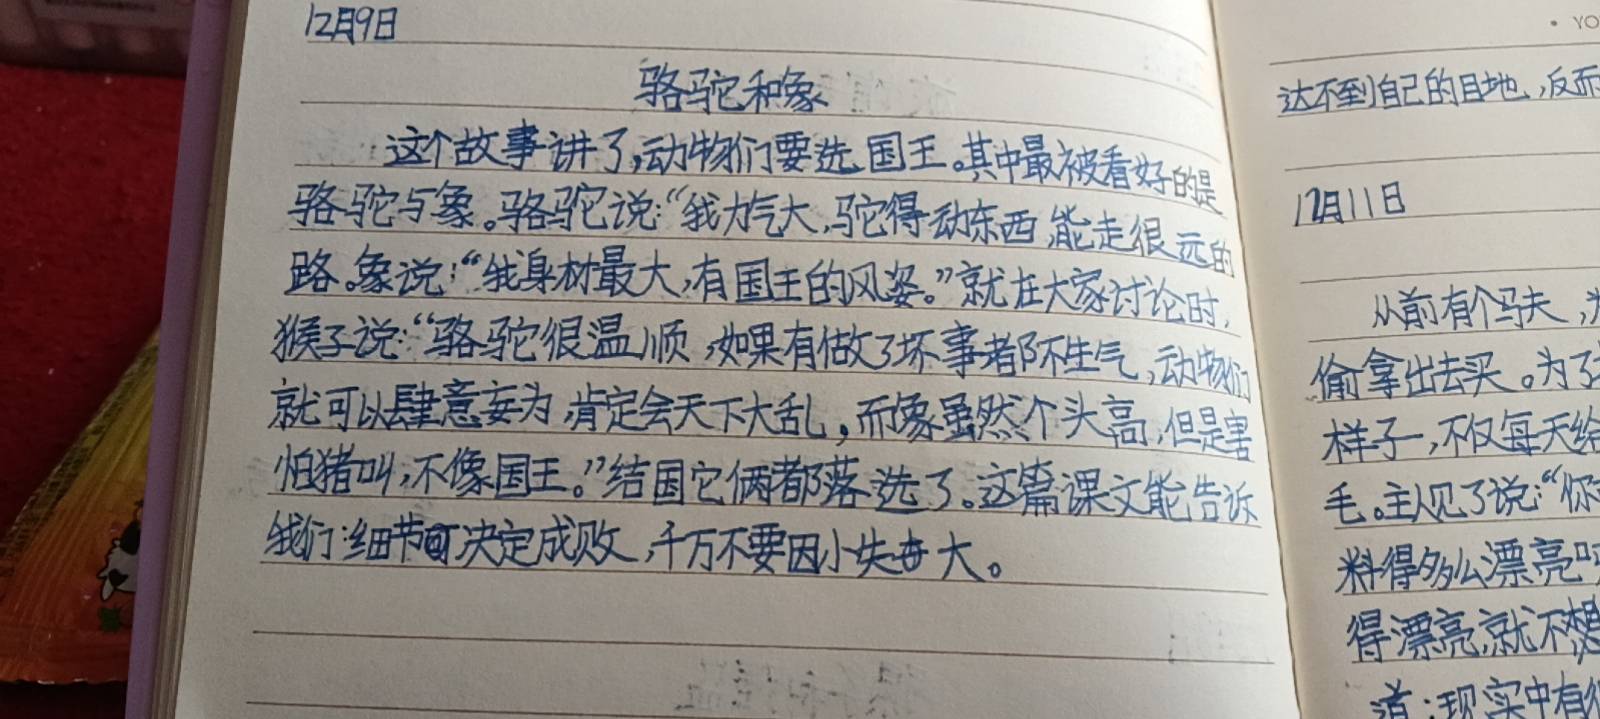 12月9日
骆驼和象
这个故事讲了,动物们要选国王。其中最被看好的是
骆驼与象。骆驼说:“我力气大,驼得动东西,能走很远的
路。象说:“我身材最大,有国王的风姿。”就在大家讨论时,
猴子说:“骆驼很温顺,如果有做了坏事者都不生气,动物们
就可以肆意妄为,肯定会天下大乱。而象虽然个头高,但是害
怕猪叫,不像国王。”结国它俩都落选了。这篇课文能告诉
我们:细节可决定成败,千万不要因小失大。
YO
达不到自己的目地,反而
12月11日
从前有个马夫,
偷拿出去买。为了
样子,不仅每天给
毛。主人见了说:“你
料得多么漂亮
得漂亮,就不想
道:现实中有很